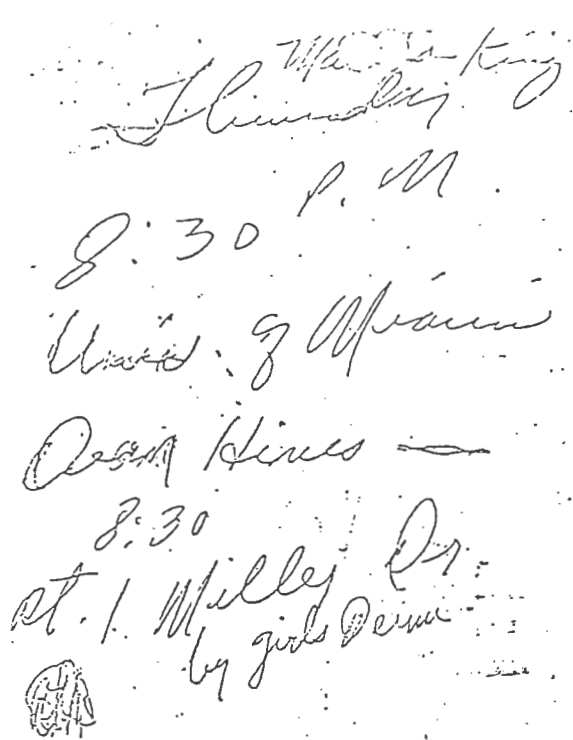 King
Thursday
P. M.
8:30
Univ. of Miami
Dean Hines —
8:30
at. 1. Miller Dr.
by girls Dorm